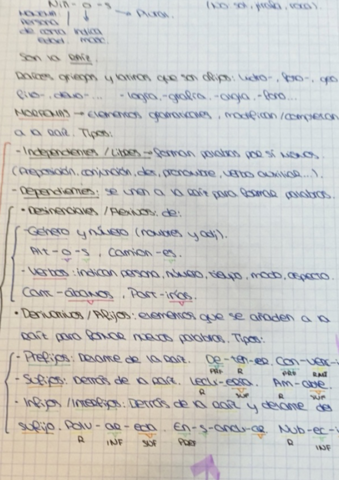 Niñ - o - s → Plural.
persona
de corta indica
edad. masc.
Son la raíz.
Raíces griegas y latinas que son afijos:
... - logía, -grafía,
Morfemas → elementos gramaticales, modifican/completan
a la raíz. Tipos:
- Independientes / Libres → forman palabras por sí mismos.
(Preposición, conjunción, det, pronombre, verbo auxiliar...).
- Dependientes: se unen a la raíz para formar palabras.
• Desinenciales / Flexivos: de:
- Género y número (nombres y adj).
-o-s, Camion-es.
- Verbos: indican persona, número, tiempo, modo, aspecto.
Cant-ábamos, Part-iríais.
• Derivativos / Afijos: elementos que se añaden a la
raíz para formar nuevas palabras. Tipos:
- Prefijos: Delante de la raíz. De-ten-er
PRE R PRE RAÍZ
- Sufijos: Detrás de la raíz. Am-able.
R SUF R SUF
- Infijos / Interfijos: Detrás de la raíz y delante del
sufijo. Polv-ar-eda. En-s-anch-ar Nub-ec-i
R INF SUF R INF